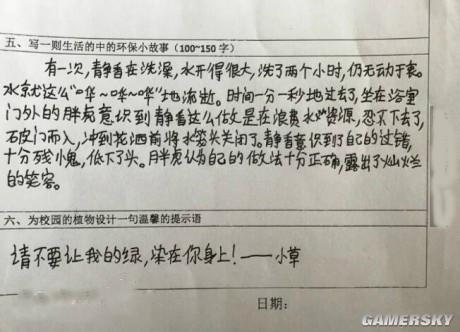 五、写一则生活的中的环保小故事(100~150字)
有一次,静香在洗澡,水开得很大,洗了两个小时,仍无动于衷。
水就这么“哗~哗~哗”地流逝。时间一分一秒地过去了,坐在浴室
门外的胖虎意识到静香这么做是在浪费水资源,忍不下去了,
破门而入,冲到花洒前将水笼头关闭了。静香意识到了自己的过错,
十分残愧,低下了头。胖虎认为自己的做法十分正确,露出了灿烂
的笑容。
六、为校园的植物设计一句温馨的提示语
请不要让我的绿,染在你身上!——小草
日期:
GAMERSKY